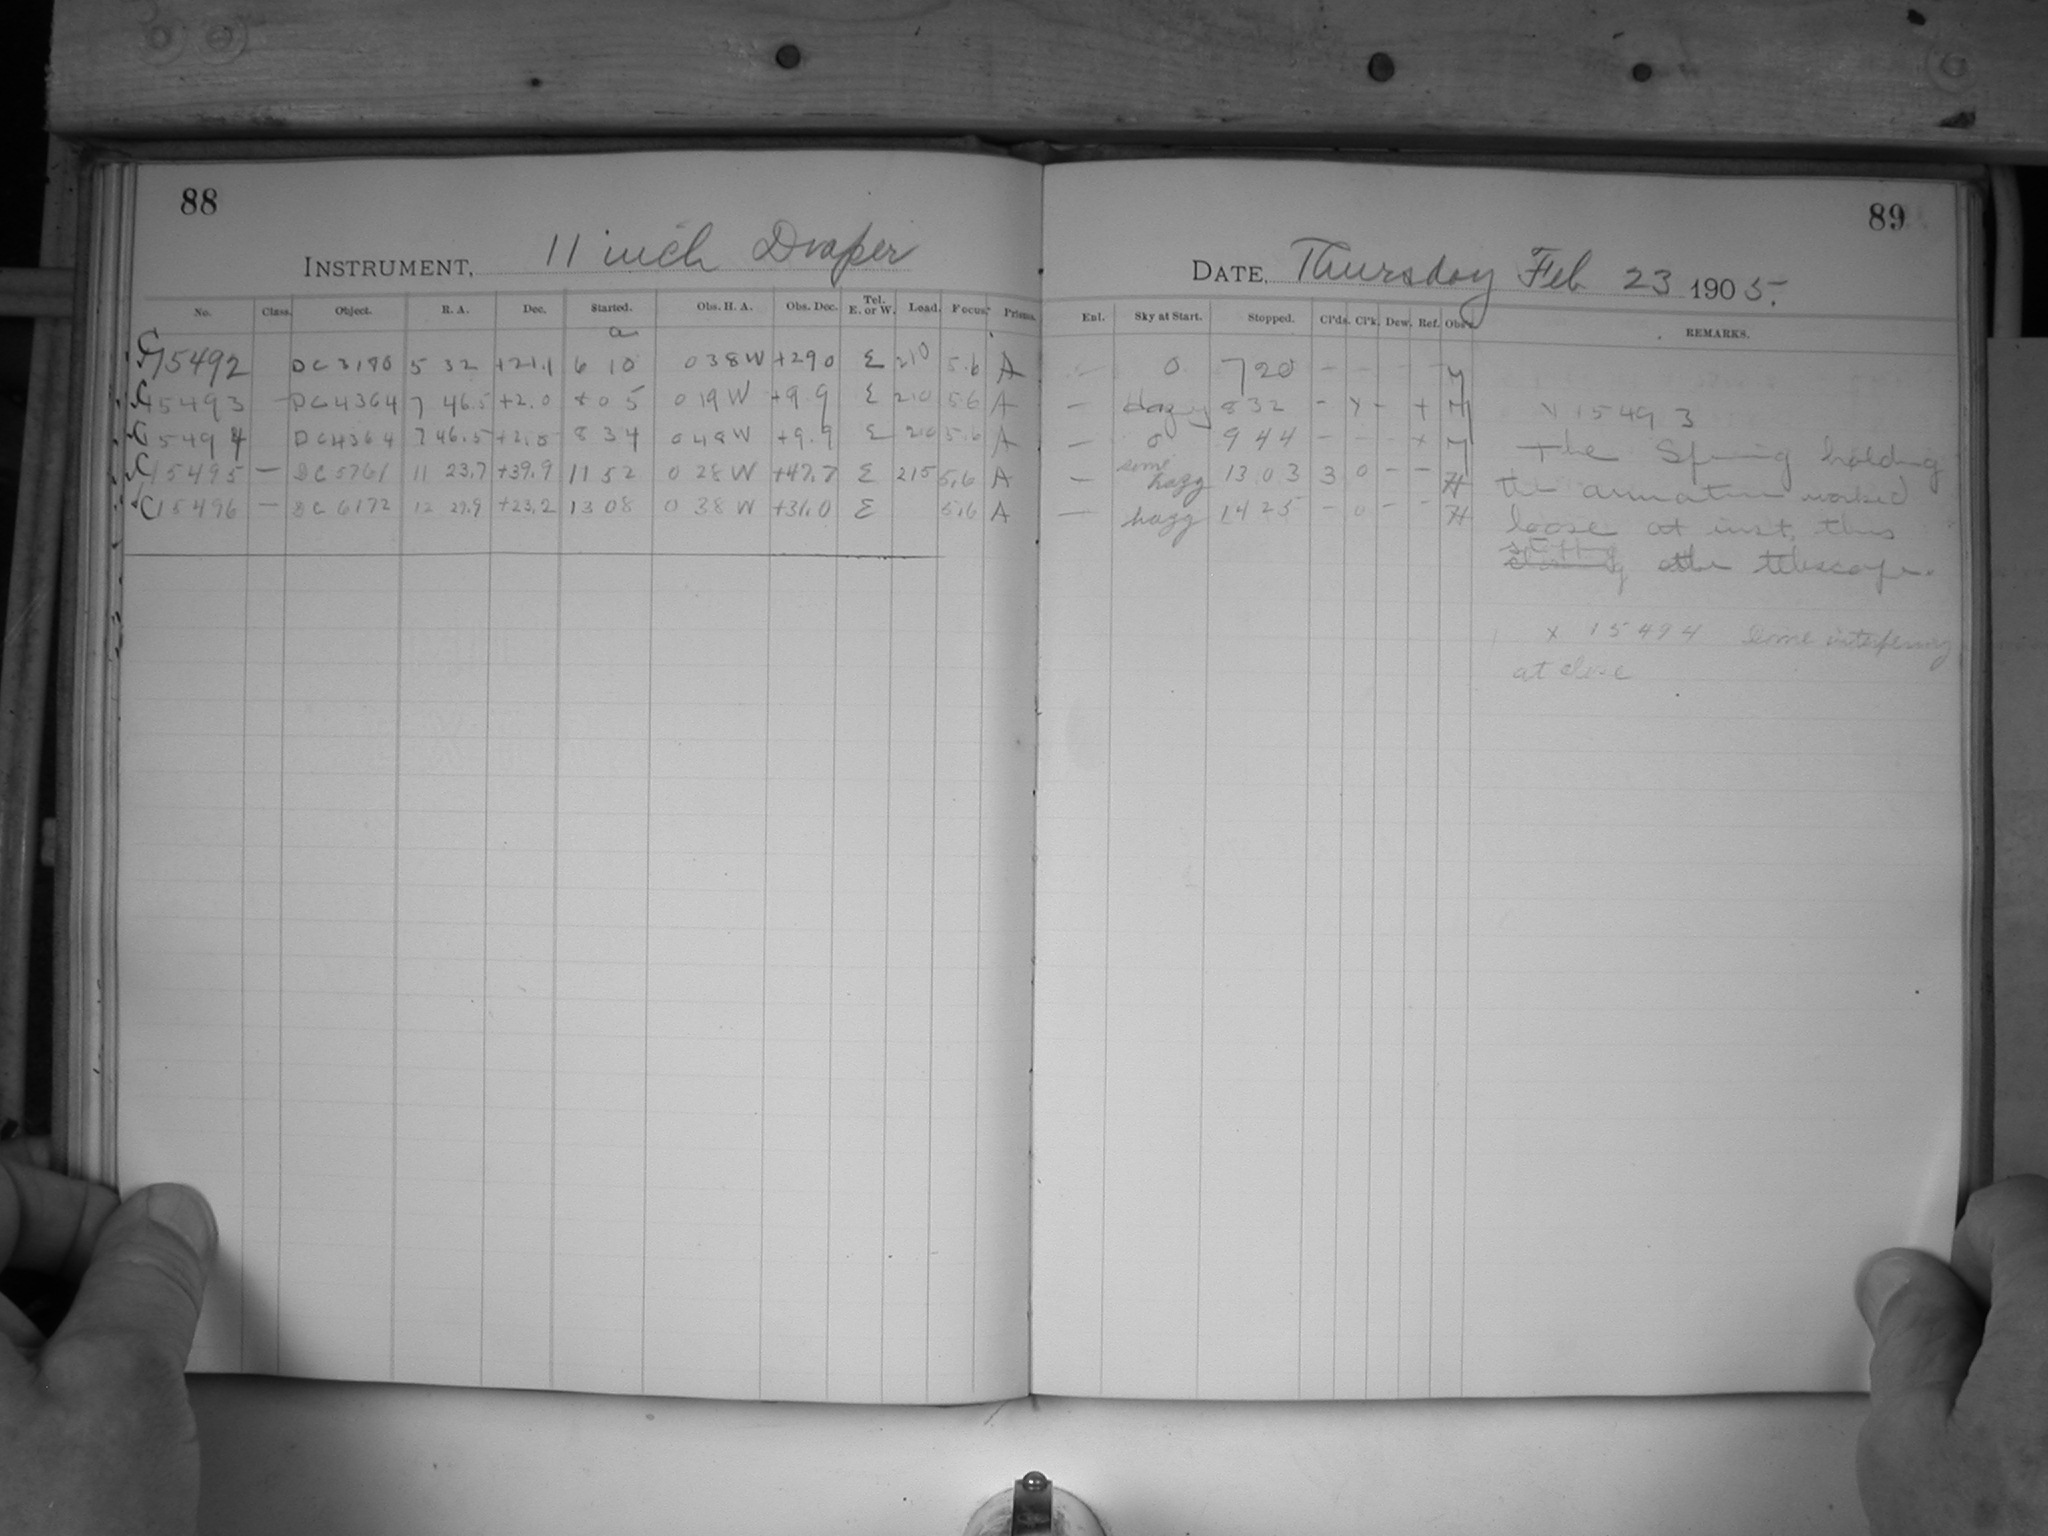 88
INSTRUMENT, 11 inch Draper
No. Class. Object. R. A. Dec. Started. Obs. H. A. Obs. Dec. Tel. E. or W. Load. Focus. Prisms.
a
C15492 DC 3180 5 32 +21.1 6 10 0 38 W +29 0 E 210 5.6 A
C15493 — DC 4364 7 46.5 +2.0 05 0 19 W +9 9 E 210 5.6 A
C15494 DC4364 7 46.5 +2.0 8 34 0 48 W +9.9 E 210 5.6 A
C15495 — DC 5761 11 23.7 +39.9 11 52 0 28 W +47.7 E 215 5.6 A
C15496 — DC 6172 12 27.9 +23.2 13 08 0 38 W +31.0 E 5.6 A
89
DATE, Thursday Feb 23 1905.
Enl. Sky at Start. Stopped. Cl'ds. Cl'k. Dew. Ref. Obs'r. REMARKS.
0 7 20 – – – –
— Hazy 8 32 – x – + x 15493
— 0 9 44 – – – x The Spring holding
— some hazy 13 03 3 0 – – H the armature worked
— hazy 14 25 – 0 – – H loose at inst. thus
the telescope.
x 15494 Some interfering
at close